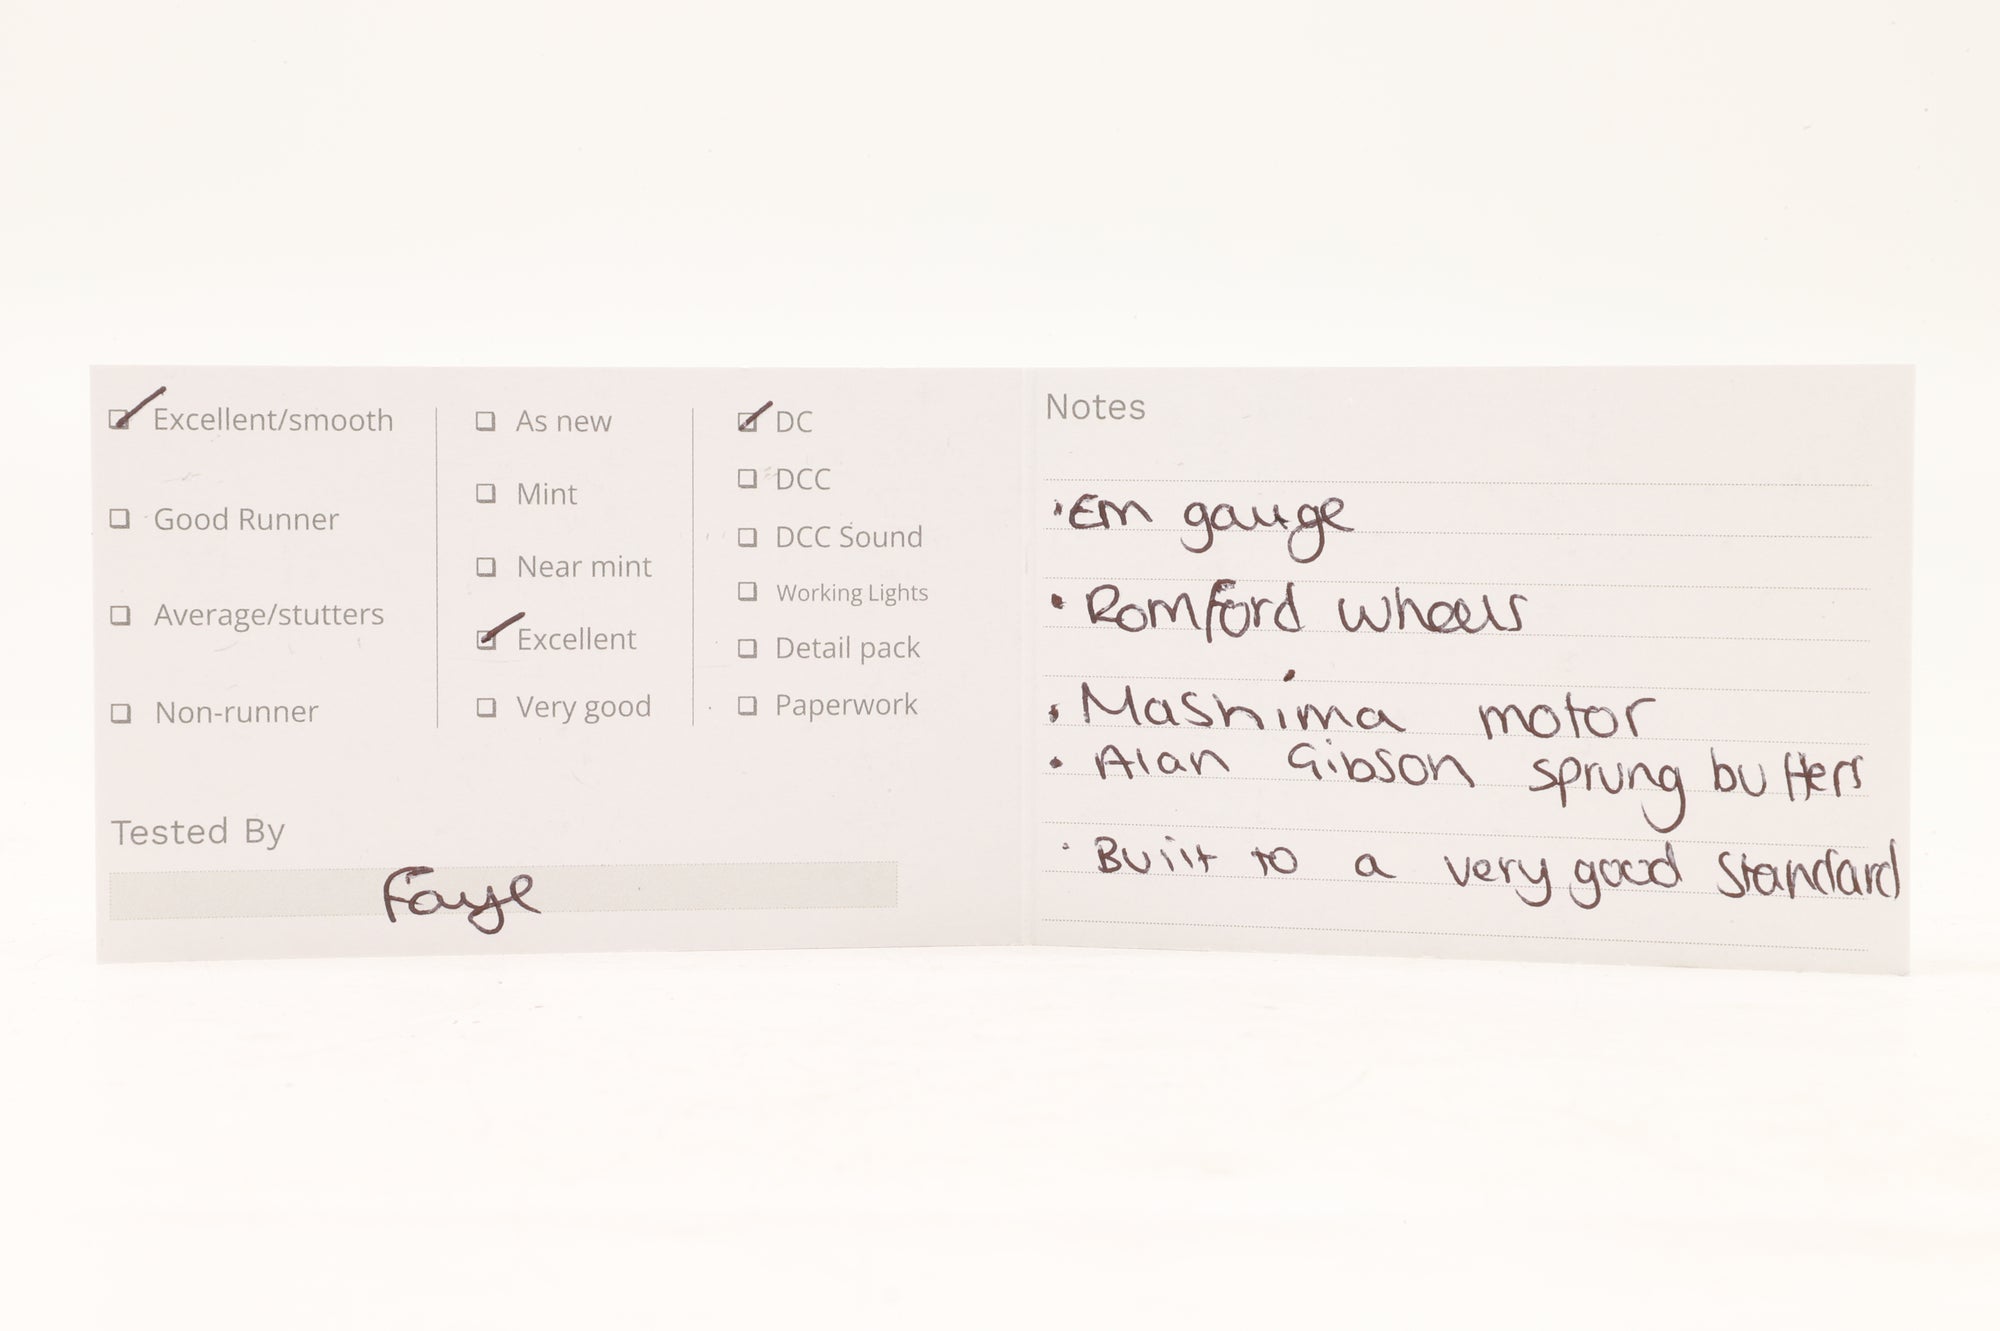 Excellent/smooth
Good Runner
Average/stutters
Non-runner
As new
Mint
Near mint
Excellent
Very good
DC
DCC
DCC Sound
Working Lights
Detail pack
Paperwork
Tested By
Faye
Notes
• Em gauge
• Romford wheels
• Mashima motor
• Alan Gibson sprung buffers
• Built to a very good standard